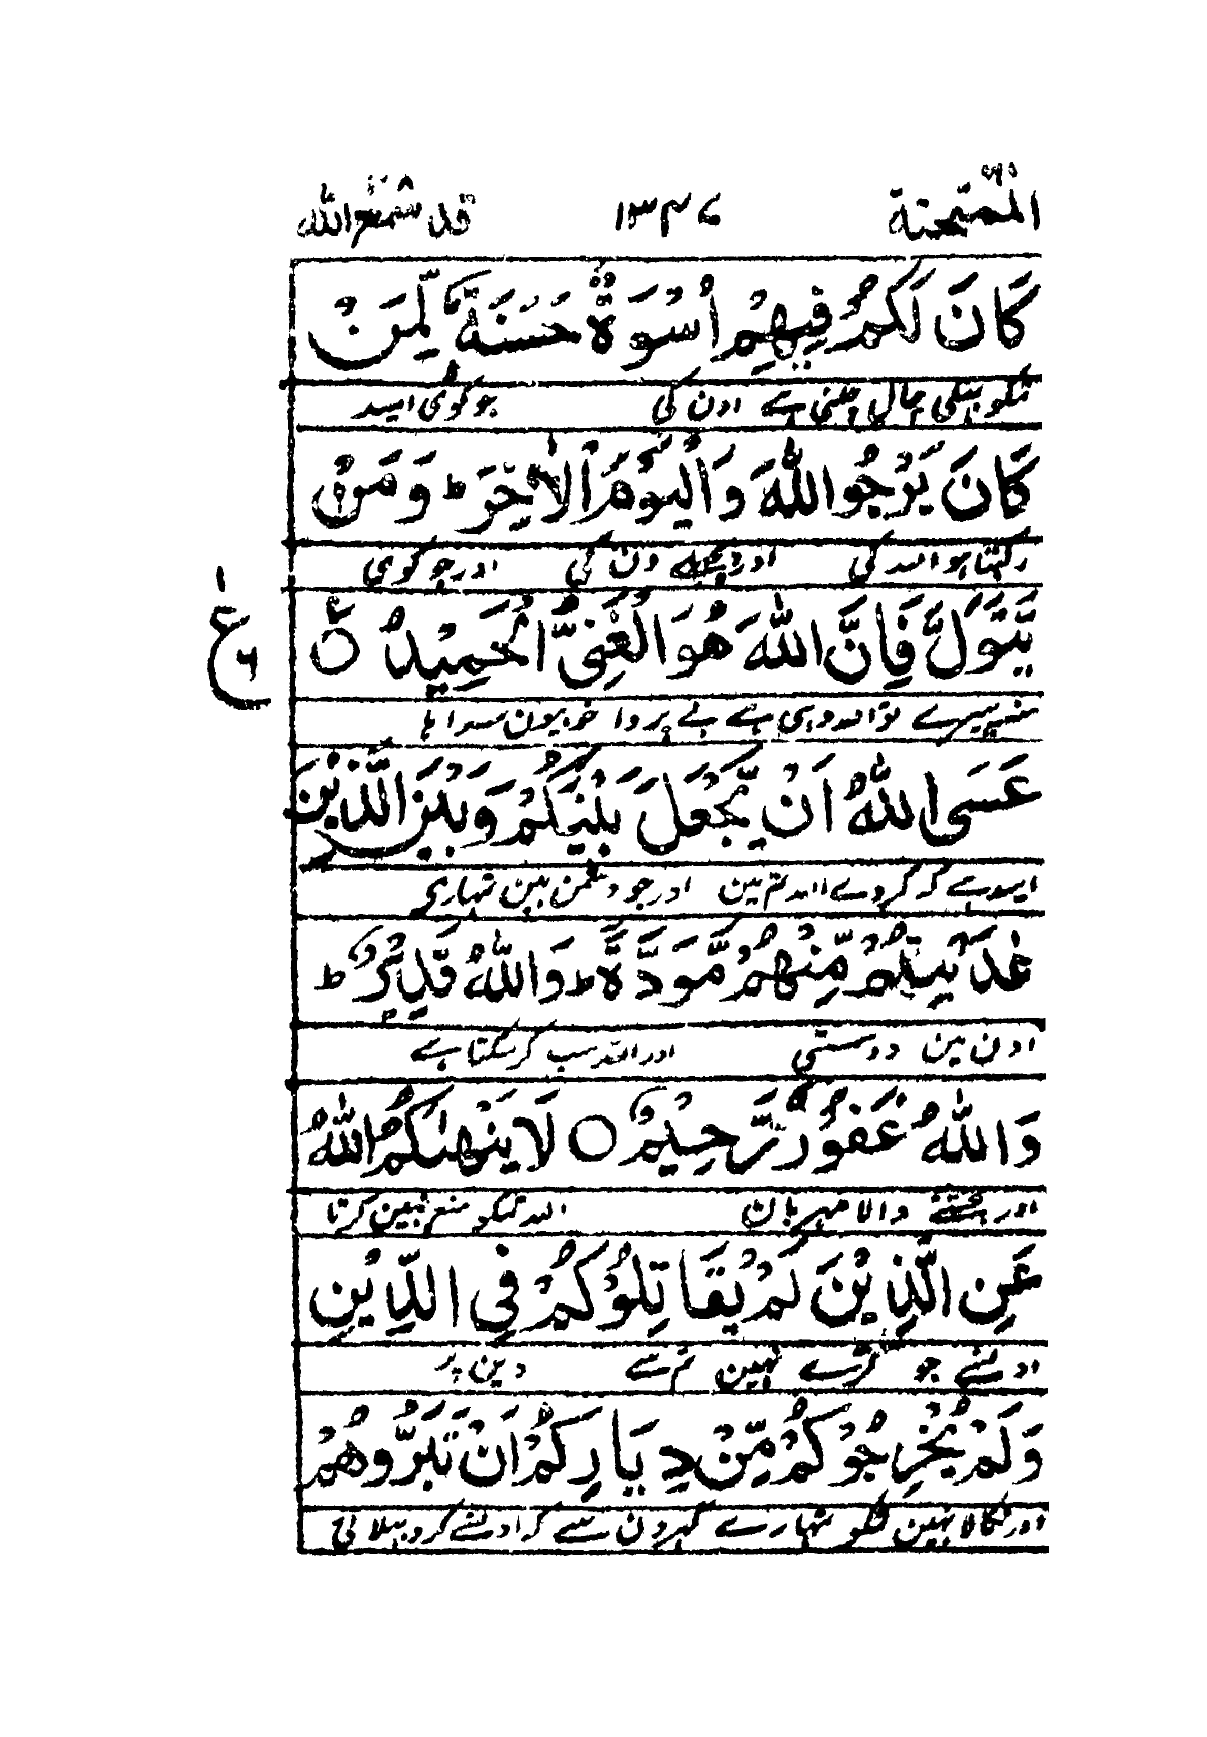 الممتحنة ٦٠ ١٣٤٧ قد سمع الله ٢٨
كَانَ لَكُمْ فِيْهِمْ اُسْوَةٌ حَسَنَةٌ لِّمَنْ
تمکو بھلی چال چلنی ہے اون کی جو کوئی امید
كَانَ يَرْجُوا اللّٰهَ وَالْيَوْمَ الْاٰخِرَ ؕ وَمَنْ
رکھتا ہو اللہ کی اور پچھلے دن کی اور جو کوئی
يَّتَوَلَّ فَاِنَّ اللّٰهَ هُوَ الْغَنِىُّ الْحَمِيْدُ ۝ ع
منہ پھیرے تو اللہ وہی ہے بے پروا خوبیون سراہا
ع ٦
عَسَى اللّٰهُ اَنْ يَّجْعَلَ بَيْنَكُمْ وَبَيْنَ الَّذِيْنَ
امید ہے کہ کردے اللہ تم مین اور جو دشمن ہین تمہاری
عَادَيْتُمْ مِّنْهُمْ مَّوَدَّةً ؕ وَاللّٰهُ قَدِيْرٌ ؕ
اون مین دوستی اور اللہ سب کر سکتا ہے
وَاللّٰهُ غَفُوْرٌ رَّحِيْمٌ ۝ لَا يَنْهٰىكُمُ اللّٰهُ
اور بخشنے والا مہربان اللہ تمکو منع نہین کرتا
عَنِ الَّذِيْنَ لَمْ يُقَاتِلُوْكُمْ فِى الدِّيْنِ
اونسے جو لڑے نہین تم سے دین پر
وَلَمْ يُخْرِجُوْكُمْ مِّنْ دِيَارِكُمْ اَنْ تَبَرُّوْهُمْ
اور نکالا نہین تمکو تمہارے گھرون سے کہ اونسے کرو بھلائی